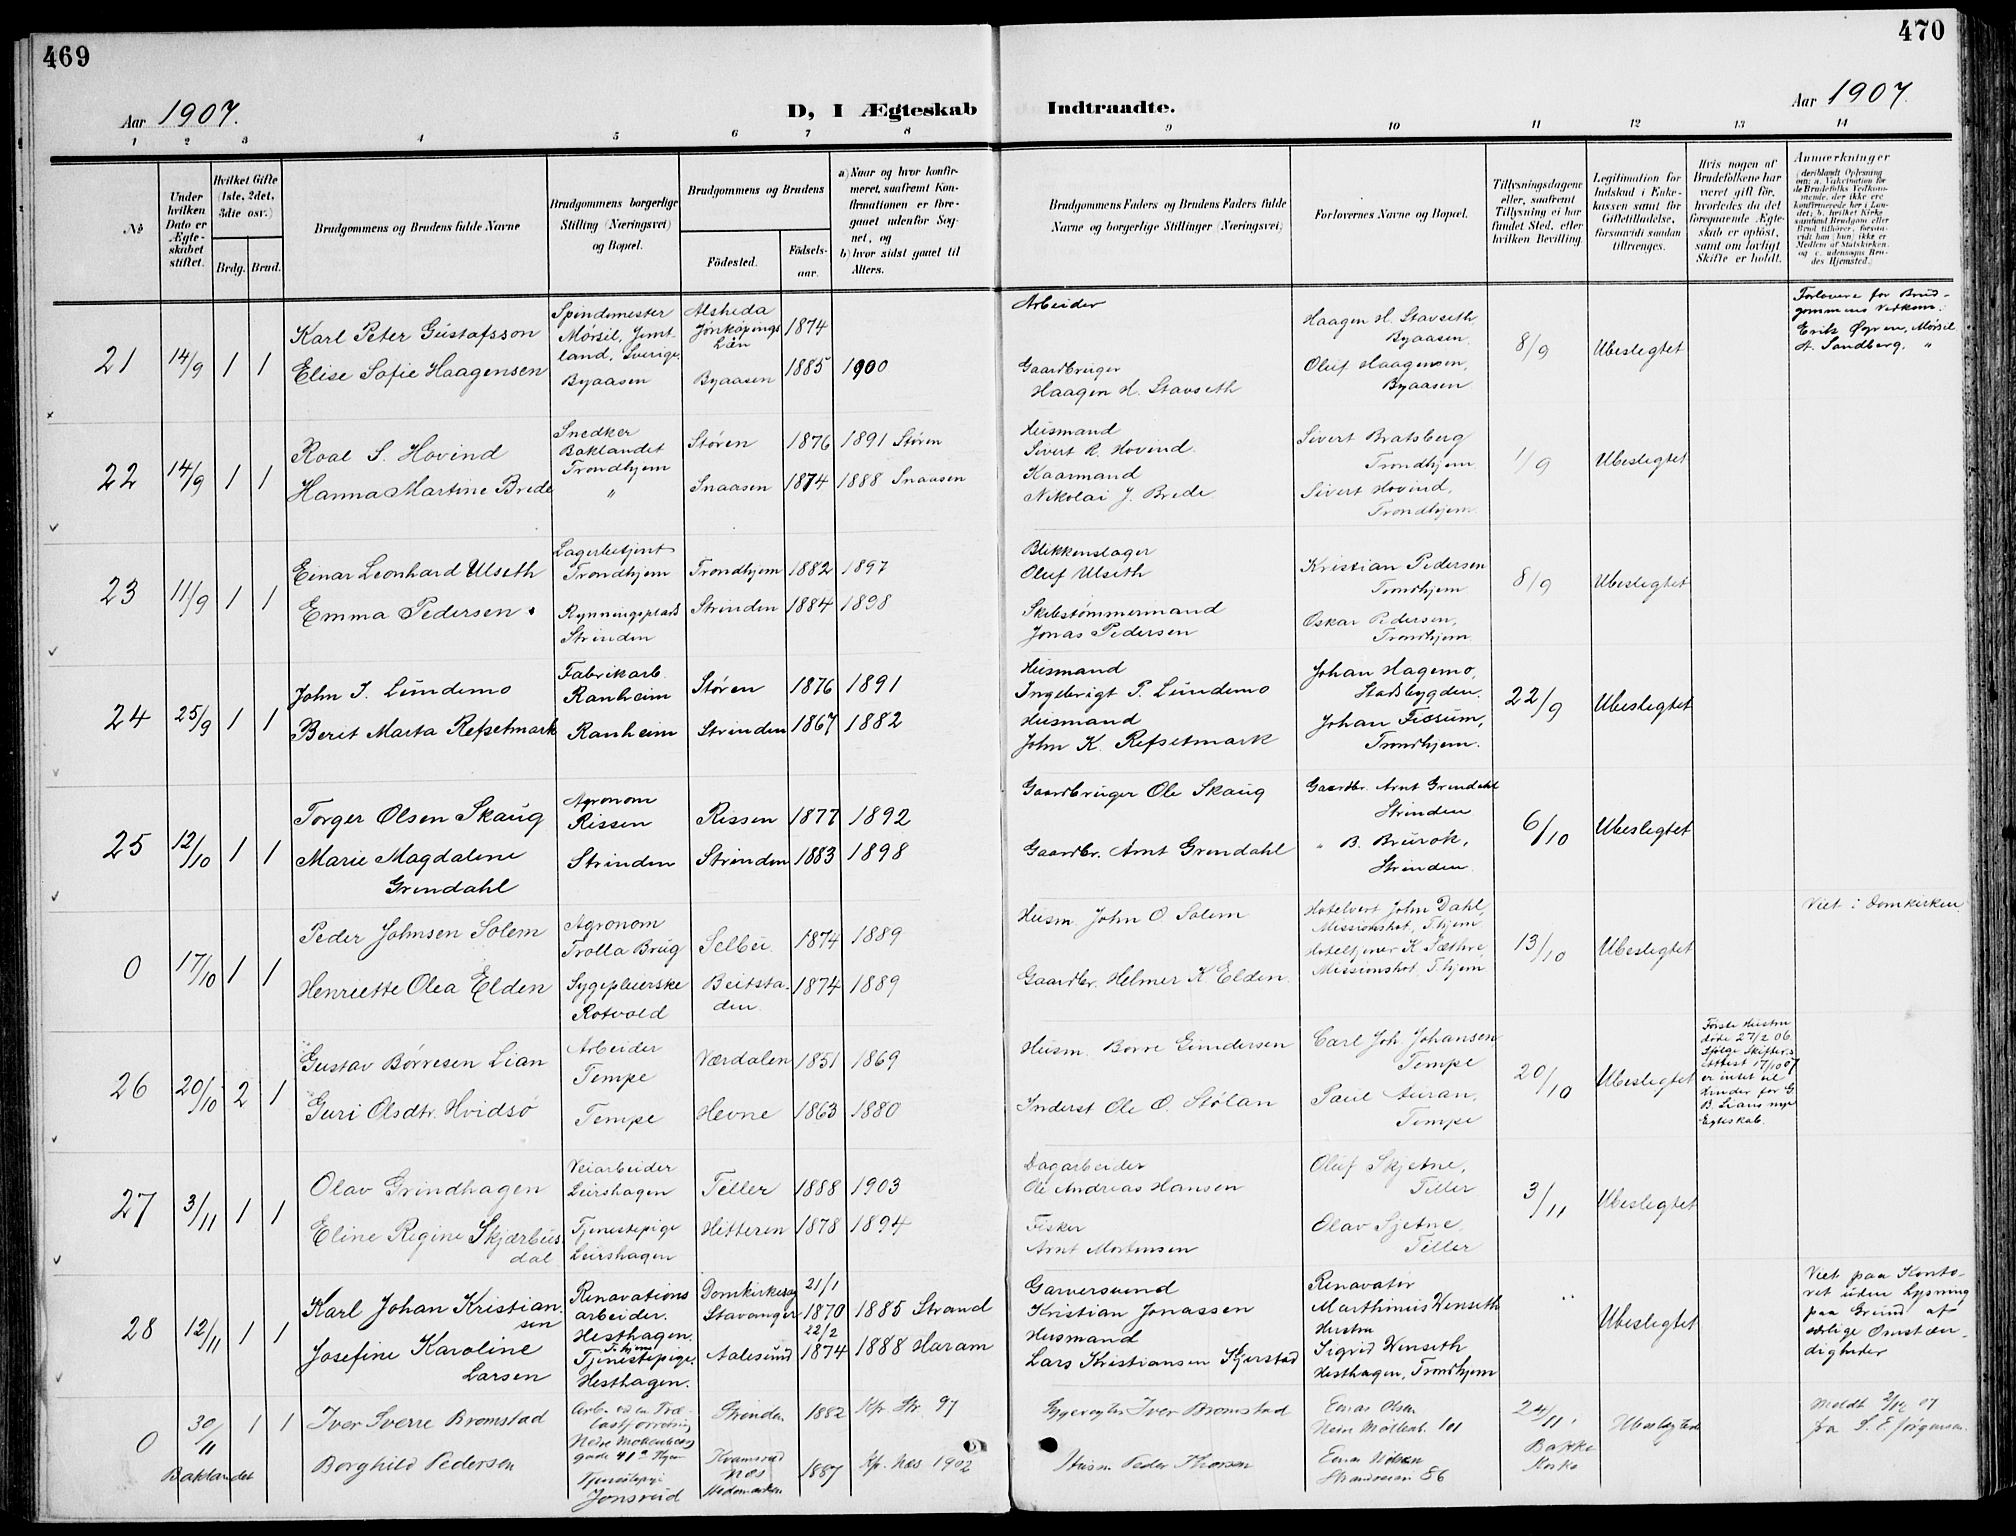 469
470
Aar 1907.
D, I Ægteskab Indtraadte.
Aar 1907.
1 2 3 4 5 6 7 8 9 10 11 12 13 14
№
Under hvilken Dato er Ægteskabet stiftet.
Hvilket Gifte (1ste, 2det, 3die osv.)
Brdg. Brud.
Brudgommens og Brudens fulde Navne
Brudgommens borgerlige Stilling (Næringsvei) og Bopæl.
Brudgommens og Brudens
Fødested.
Fødselsaar.
a) Naar og hvor konfirmeret, saafremt Konfirmationen er foregaaet udenfor Sognet, og
b) hvor sidst gaaet til Alters.
Brudgommens Faders og Brudens Faders fulde Navne og borgerlige Stillinger (Næringsvei)
Forlovernes Navne og Bopæl.
Tillysningsdagene eller, saafremt Tillysning ei har fundet Sted, efter hvilken Bevilling.
Legitimation for Indskud i Enkekassen samt for Giftetilladelse, forsaavidt saadan tiltrænges.
Hvis nogen af Brudefolkene har været gift før, hvorledes da det foregaaende Ægteskab er opløst, samt om lovligt Skifte er holdt.
Anmerkninger
21 14/9 1 1
Karl Peter Gustafsson
Elise Sofie Haagensen
Spindemester
Mörsil, Jemt-
land, Sverige.
Byaasen
Alsheda
Jönköpings
Län
Byaasen
1874
1885 1900
Arbeider
Gaardbruger
Haagen H. Stavseth
Haagen H. Stavseth,
Byaasen.
Oluf Haagensen,
Byaasen
8/9 Ubeslegtet
Forlovere for Brud-
gommens Vedkom:
Erik Öyen, Mörsil
A. Sandberg, "
22 14/9 1 1
Roal S. Hovind
Hanna Martine Brede
Snedker
Baklandet
Trondhjem
"
Støren 1876 1891 Støren
Snaasen 1874 1888 Snaasen
Husmand
Sivert R. Hovind.
Kaarmand
Nikolai J. Brede
Sivert Bratsberg
Trondhjem
Sivert Hovind,
Trondhjem.
1/9 Ubeslegtet
23 11/9 1 1
Einar Leonhard Ulseth
Emma Pedersen
Lagerbetjent
Trondhjem
Rynningsplads
Strinden
Trondhjem 1882 1897
Strinden 1884 1898
Blikkenslager
Oluf Ulseth
Skibstømmermand
Jonas Pedersen
Kristian Pedersen
Trondhjem
Oskar Pedersen,
Trondhjem.
8/9 Ubeslegtet
24 25/9 1 1
John I. Lundemo
Berit Marta Refsetmark
Fabrikarb.
Ranheim
Ranheim
Støren 1876 1891
Strinden 1867 1882
Husmand
Ingebrigt P. Lundemo
Husmand
John K. Refsetmark
Johan Hagemo,
Stadsbygden.
Johan Fissum,
Trondhjem.
22/9 Ubeslegtet
25 12/10 1 1
Torger Olsen Skaug
Marie Magdalene
Grendahl
Agronom
Rissen
Strinden
Rissen 1877 1892
Strinden 1883 1898
Gaardbruger Ole Skaug
Gaardbr. Arnt Grendahl
Gaardbr. Arnt Grendahl
Strinden
" B. Brurok,
Strinden
6/10 Ubeslegtet
0 17/10 1 1
Peder Johnsen Solem
Henriette Olea Elden
Agronom
Trolla Brug
Sygepleierske
Rotvold
Selbu 1874 1889
Beitsta-
den 1874 1889
Husm John O Solem
Gaardbr. Helmer K Elden.
Hotelvert John Dahl,
Missionshot. T.hjem
Hoteltjener K. Sæthre,
Missionshot, T.hjem
13/10 Ubeslegtet
Viet i Domkirken.
26 20/10 2 1
Gustav Børresen Lian
Guri Olsdtr. Hvidsø
Arbeider
Tempe
Tempe
Værdalen 1851 1869
Hevne 1863 1880
Husm. Børre Gundersen
Inderst Ole O. Stølan
Carl Joh. Johansen
Tempe
Paul Auran,
Tempe
20/10 Ubeslegtet
Første Hustru
døde 27/2 06.
Ifølge Skifter:s
Attest 17/10 07
er intet til
Hinder for G.
B. Lians nye
Egteskab.
27 3/11 1 1
Olav Grindhagen
Eline Regine Skjærbus-
dal
Veiarbeider
Leirshagen
Tjenestepige
Leirshagen
Tiller 1888 1903
Hitteren 1878 1894
Dagarbeider
Ole Andreas Hansen
Fisker
Arnt Mortensen
Oluf Skjetne,
Tiller
Olav Sjetne,
Tiller
3/11 Ubeslegtet
28 12/11 1 1
Karl Johan Kristian-
sen
Josefine Karoline
Larsen
Renovations
arbeider.
Hesthagen.
T.hjem
Tjenestepige.
Hesthagen.
Domkirkesog
Stavanger
Aalesund
21/1
1870 1885 Strand
22/2
1874 1888 Haram
Garversvend
Kristian Jonassen
Husmand
Lars Kristiansen Skjerstad
Renovatør
Marthinus Wenseth
Hustru
Sigrid Wenseth
Hesthagen, Trondhjem
" Ubeslegtet
Viet paa Konto-
ret uden Lysning
paa Grund af
særlige Omstæn-
digheder
0 30/11 1 1
Baklandet
Iver Sverre Bromstad
Borghild Pedersen
Arb. ved en Træ-
lastforretning
Nedre Møllenberg
gade 41a Thjem
Tjenestepige
Jonsvud
Strinden 1882 Kfr. Str. 97
Kvamsvud
Næs
Hedemarken
1887 Kfr. Næs 1902
Iver Bromstad
Husm Peder Thorsen
Einar Olsen
Nedre Møllenb. 101
Einar Nilsen
Strandveien 86
24/11
Bakke
Kirke
Ubeslegtede
Meldt 3/12 07
fra S. E. Jørgensen